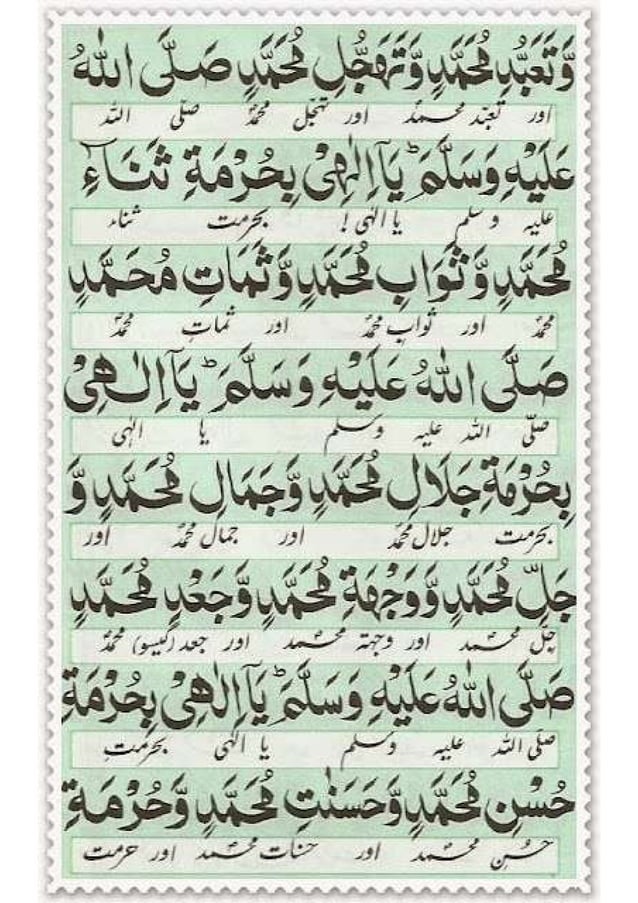 وَّتَعَبُّدِ مُحَمَّدٍ وَّتَهَجُّلِ مُحَمَّدٍ صَلَّى اللهُ
اور تعبّد محمدؐ اور تہجّل محمدؐ صلّی اللہ
عَلَيْهِ وَسَلَّمَ ؕ يَآ اِلٰهِيْ بِحُرْمَةِ ثَنَآءِ
علیہ وسلم یا الٰہی! بحرمت ثناء
مُحَمَّدٍ وَّثَوَابِ مُحَمَّدٍ وَّثَمَاتِ مُحَمَّدٍ
محمدؐ اور ثوابِ محمدؐ اور ثماتِ محمدؐ
صَلَّى اللهُ عَلَيْهِ وَسَلَّمَ ؕ يَآ اِلٰهِيْ
صلّی اللہ علیہ وسلم یا الٰہی
بِحُرْمَةِ جَلَالِ مُحَمَّدٍ وَّجَمَالِ مُحَمَّدٍ وَّ
بحرمت جلال محمدؐ اور جمال محمدؐ اور
جَلِّ مُحَمَّدٍ وَّوَجْهَةِ مُحَمَّدٍ وَّجَعْدِ مُحَمَّدٍ
جلّ محمد اور وجہتہ محمد اور جعد (گیسو) محمدؐ
صَلَّى اللهُ عَلَيْهِ وَسَلَّمَ ؕ يَآ اِلٰهِيْ بِحُرْمَةِ
صلّی اللہ علیہ وسلم یا الٰہی بحرمتِ
حُسْنِ مُحَمَّدٍ وَّحَسَنٰتِ مُحَمَّدٍ وَّحُرْمَةِ
حُسنِ محمد اور حسنات محمد اور حرمت